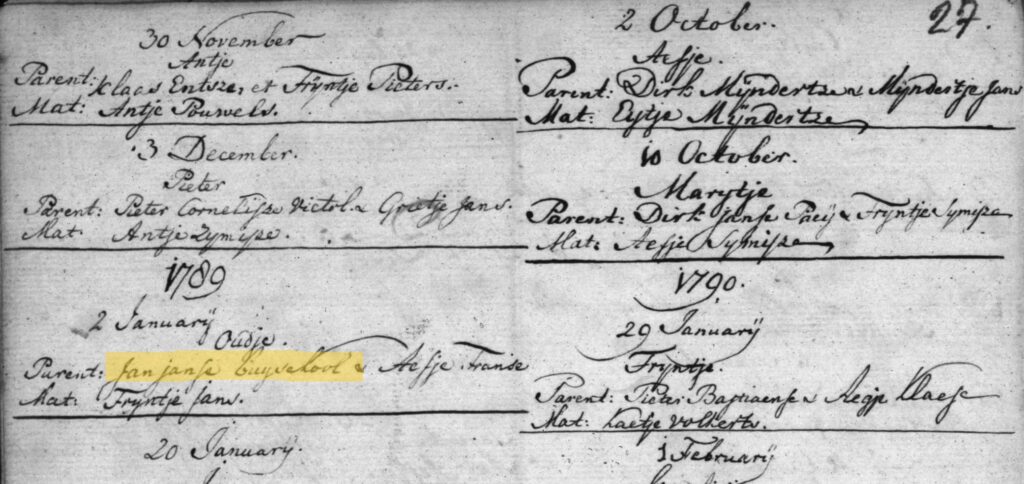 27.
30 November
Antje
Parent: Klaas Entsze, et Trÿntje Pieters.
Mat: Antje Pouwels.
3 December.
Pieter
Parent: Pieter Cornelisze & Grietje Jans.
Mat Antje Zymisze.
1789
2 Januarÿ
Oudje.
Parent: Jan Janse & Aefje Franse
Mat: Trÿntje Jans.
20 Januarÿ.
2 October.
Aefje.
Parent: Dirk Mÿndertze & Mÿndertje Jans
Mat: Eytje Mÿndertze
10 October.
Marytje
Parent: Dirk Janse Paeÿ & Trÿntje Symisze
Mat: Aefje Symisze
1790.
29 Januarÿ
Trÿntje.
Parent: Pieter Bastiaense & Aegje Klaese
Mat: Kaetje Volkerts.
1 Februarÿ